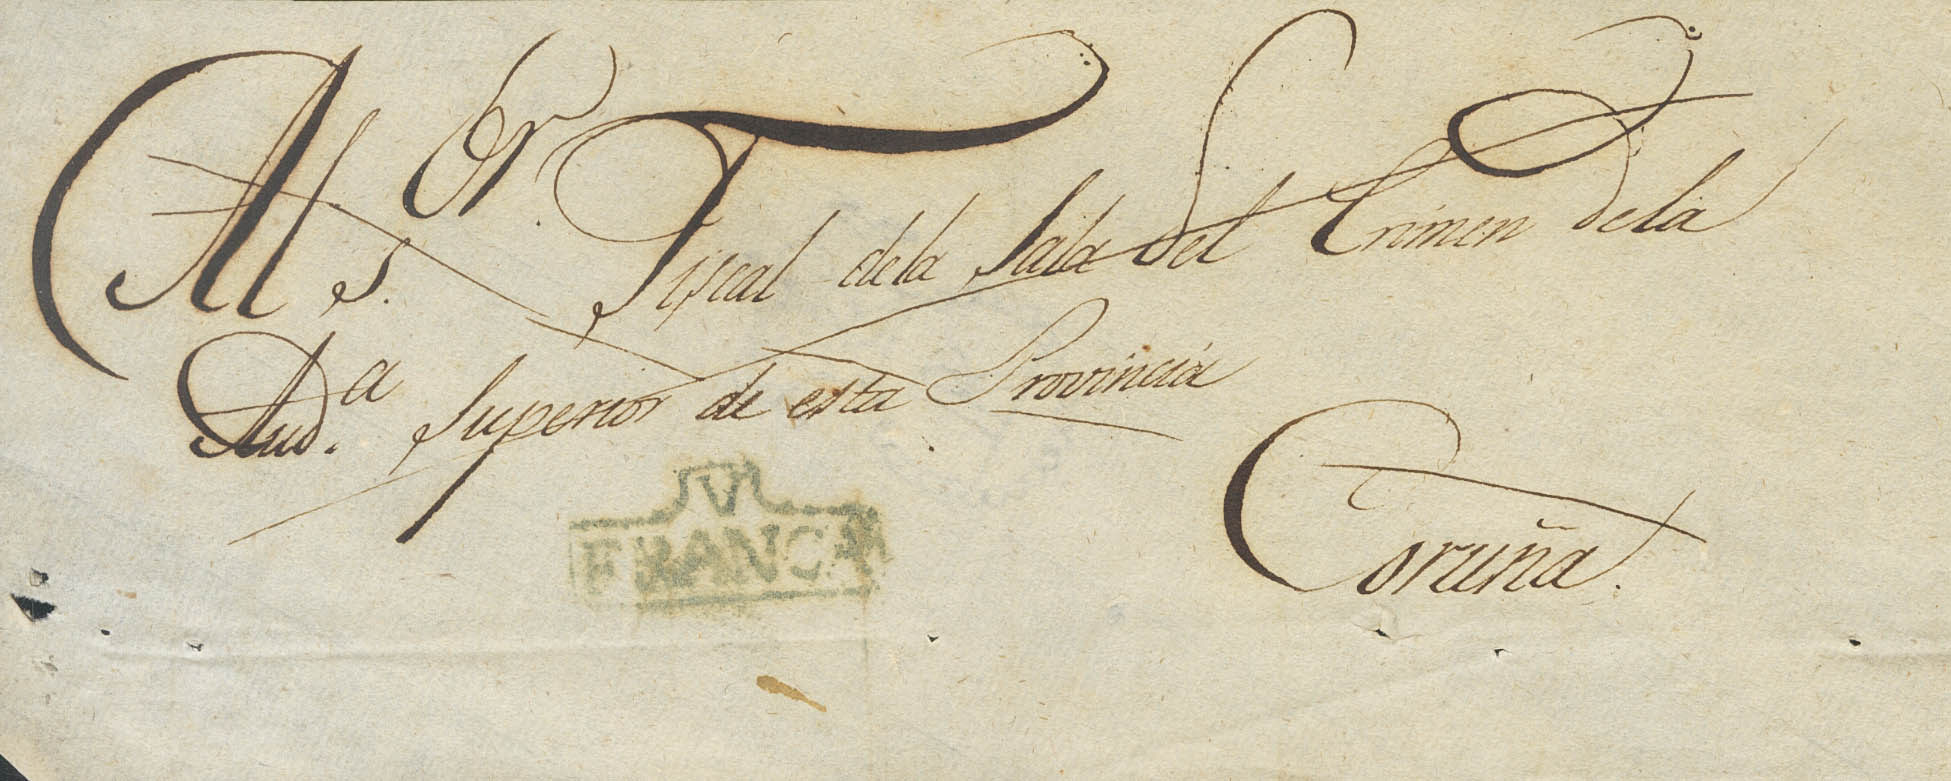 Al Sor. Fiscal dela Sala del Crimen dela
Auda. Superior de esta Provincia
V
FRANCA
Coruña.